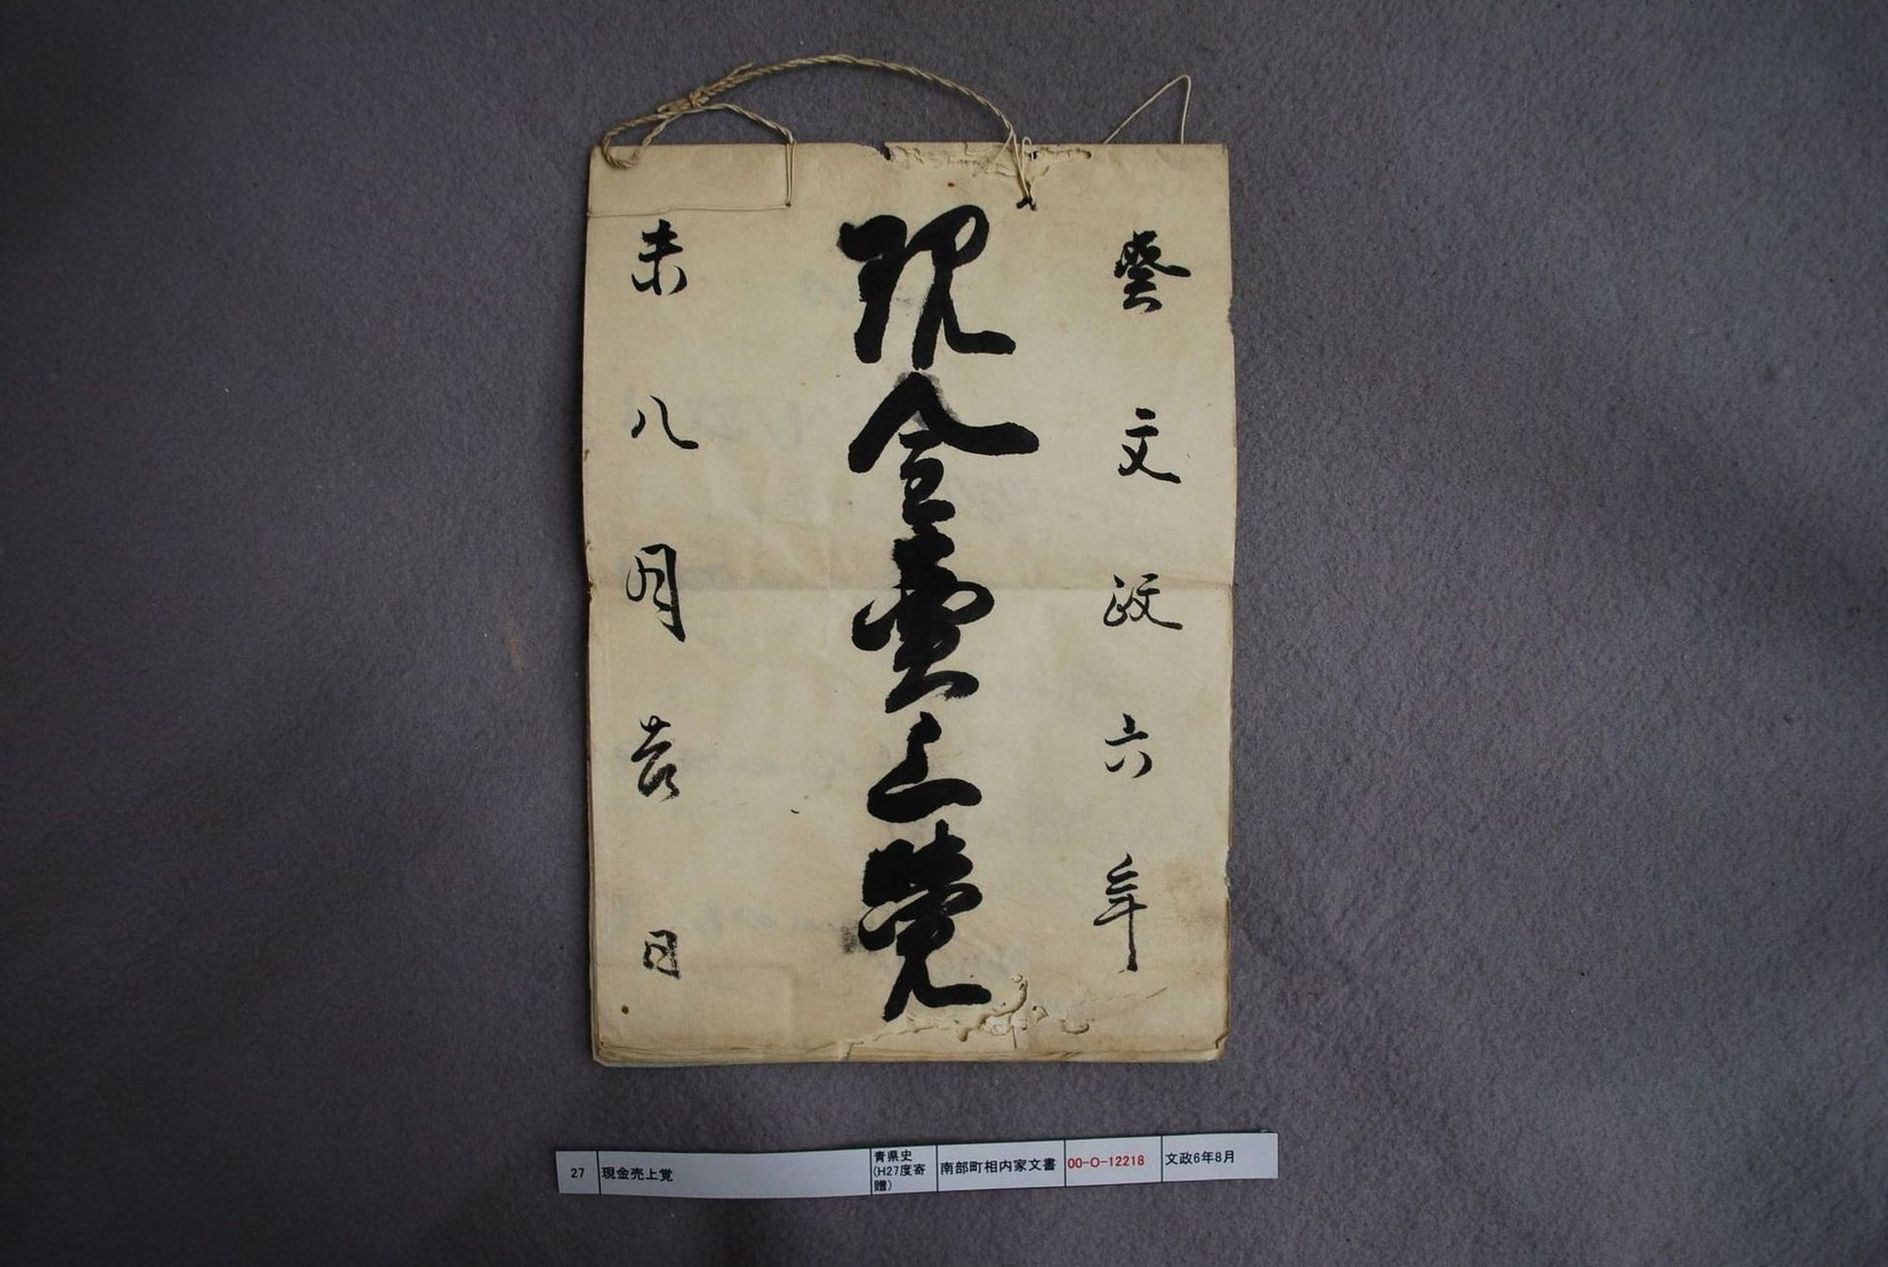 文政六年
現金賣上覚
未八月吉日
27 現金売上覚 青県史 南部町相内家文書 00-O-12218 文政6年8月
(H27度寄
贈)